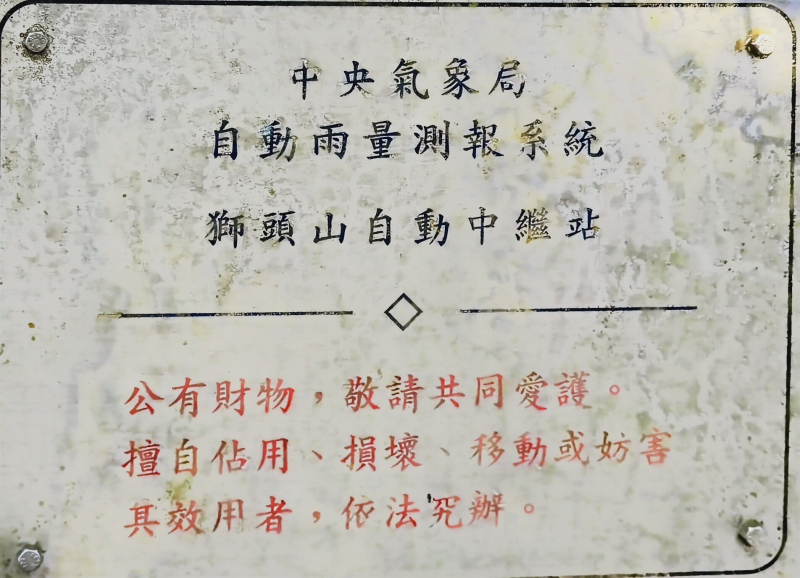 中央氣象局
自動雨量測報系統
獅頭山自動中繼站
公有財物，敬請共同愛護。
擅自佔用、損壞、移動或妨害
其效用者，依法究辦。